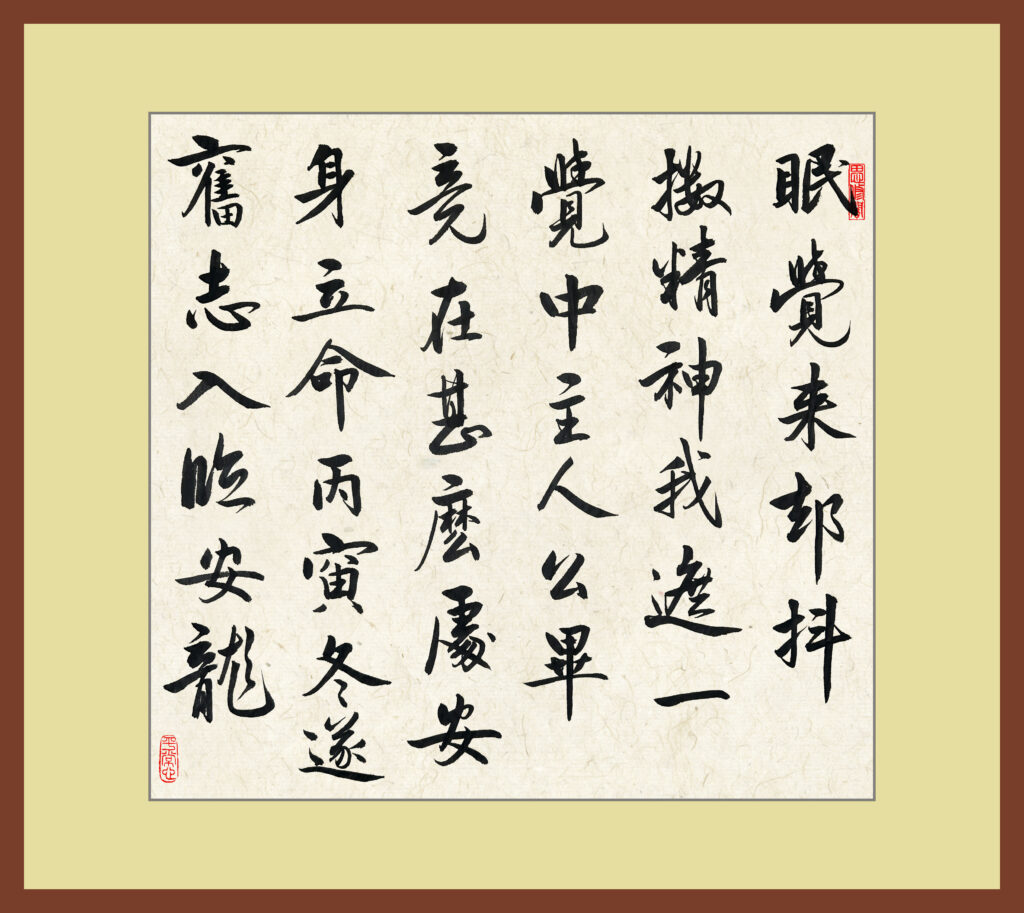 眠覺来却抖
擻精神我遮一
覺中主人公畢
竟在甚麼處安
身立命丙寅冬遂
奮志入臨安龍
平常心